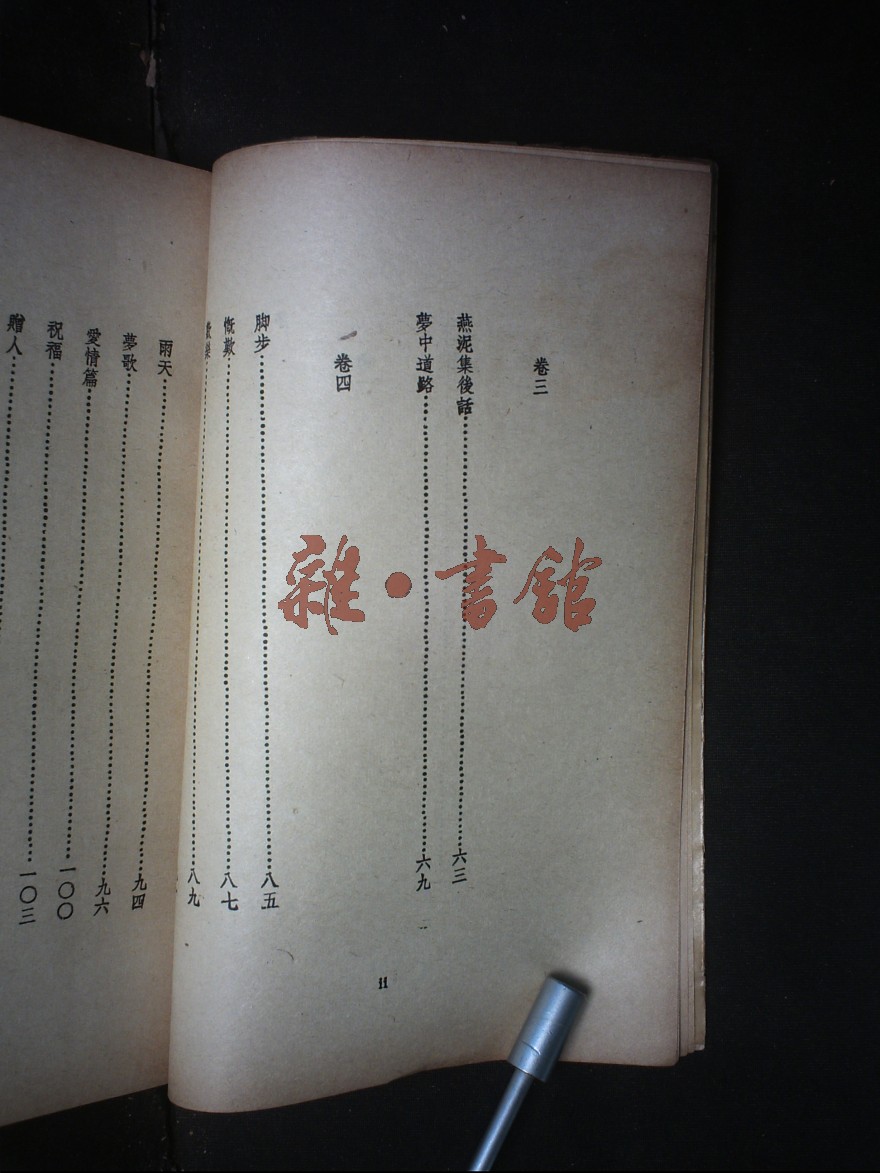 卷三
燕泥集後話⋯⋯六三
夢中道路⋯⋯六九
卷四
脚步⋯⋯八五
慨歎⋯⋯八七
八九
ii
雨天⋯⋯九四
夢歌⋯⋯九六
愛情篇⋯⋯一〇〇
祝福⋯⋯一〇三
贈人⋯⋯
雜·書館